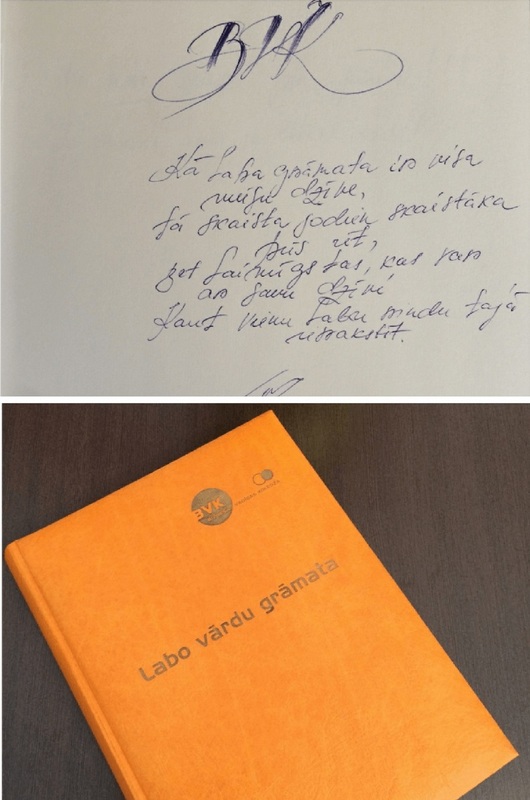 BVK
Kā laba grāmata ir visa
mūsu dzīve,
tā skaista šodien skaistāka
būs rīt,
bet laimīgs tas, kas var
ar savu dzīvi
Kaut vienu labu rindu tajā
ierakstīt.
BVK
Labo vārdu grāmata